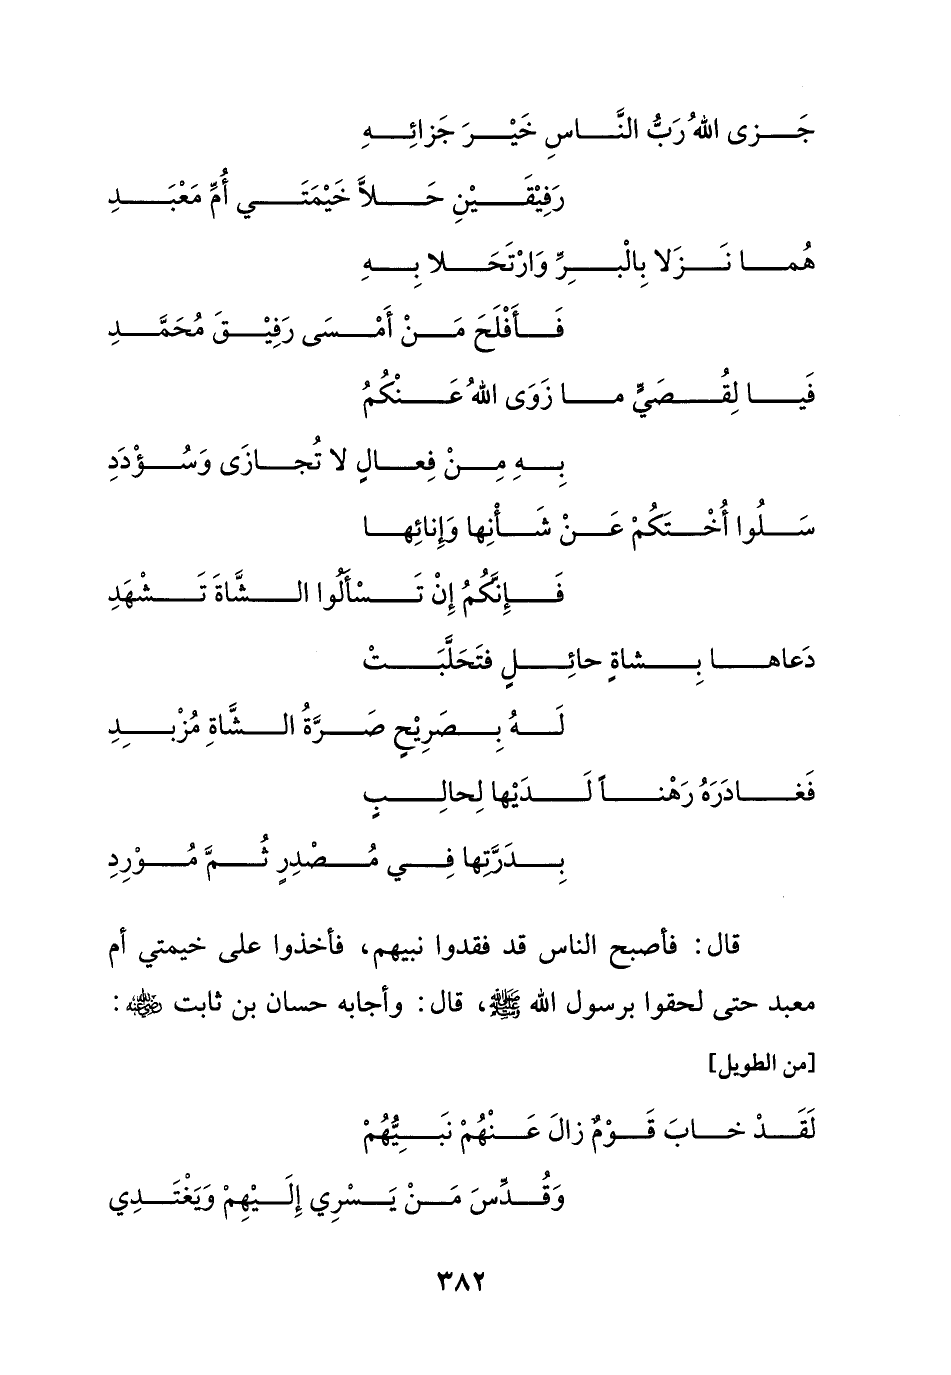 جَزى اللهُ رَبُّ النَّاسِ خَيْرَ جَزائِهِ
رَفِيْقَيْنِ حَلاَّ خَيْمَتَي أُمِّ مَعْبَدِ
هُما نَزَلا بِالْبِرِّ وَارْتَحَلا بِهِ
فَأَفْلَحَ مَنْ أَمْسَى رَفِيْقَ مُحَمَّدِ
فَيا لِقُصَيٍّ ما زَوَى اللهُ عَنْكُمُ
بِهِ مِنْ فِعالٍ لا تُجازَى وَسُؤْدَدِ
سَلُوا أُخْتَكُمْ عَنْ شَأْنِها وَإِنائِها
فَإِنَّكُمُ إِنْ تَسْأَلُوا الشَّاةَ تَشْهَدِ
دَعاها بِشاةٍ حائِلٍ فتَحَلَّبَتْ
لَهُ بِصَرِيْحٍ صَرَّةُ الشَّاةِ مُزْبِدِ
فَغادَرَهُ رَهْناً لَدَيْها لِحالِبٍ
بِدَرَّتِها فِي مُصْدِرٍ ثُمَّ مُوْرِدِ
قال: فأصبح الناس قد فقدوا نبيهم، فأخذوا على خيمتي أم
معبد حتى لحقوا برسول الله ﷺ، قال: وأجابه حسان بن ثابت رضي الله عنه:
[من الطويل]
لَقَدْ خابَ قَوْمٌ زالَ عَنْهُمْ نَبِيُّهُمْ
وَقُدِّسَ مَنْ يَسْرِي إِلَيْهِمْ وَيَغْتَدِي
٣٨٢